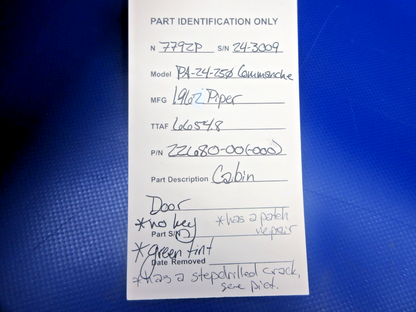 PART IDENTIFICATION ONLY
N 7792P S/N 24-3009
Model PA-24-250 Commanche
MFG 1962 Piper
TTAF 6654.8
P/N 22680-00(-000)
Part Description Cabin
Door
*no key *has a patch
Part S/N repair
*green tint
Date Removed
*has a stepdrilled crack,
see pict.